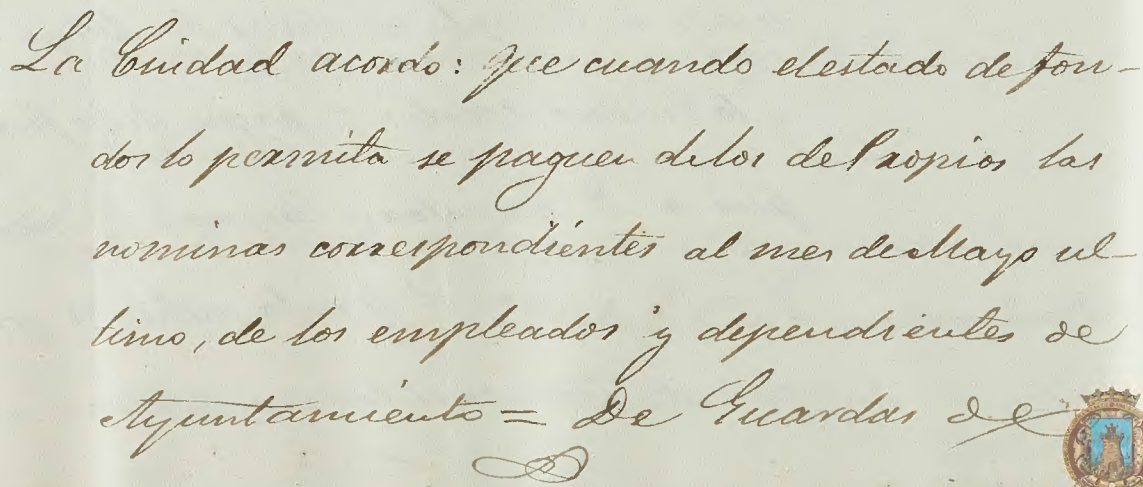 La Ciudad acordo: que cuando el estado de fon-
dos lo permita se paguen de los de Propios las
nominas correspondientes al mes de Mayo ul-
timo, de los empleados y dependientes de
Ayuntamiento = De Guardas de